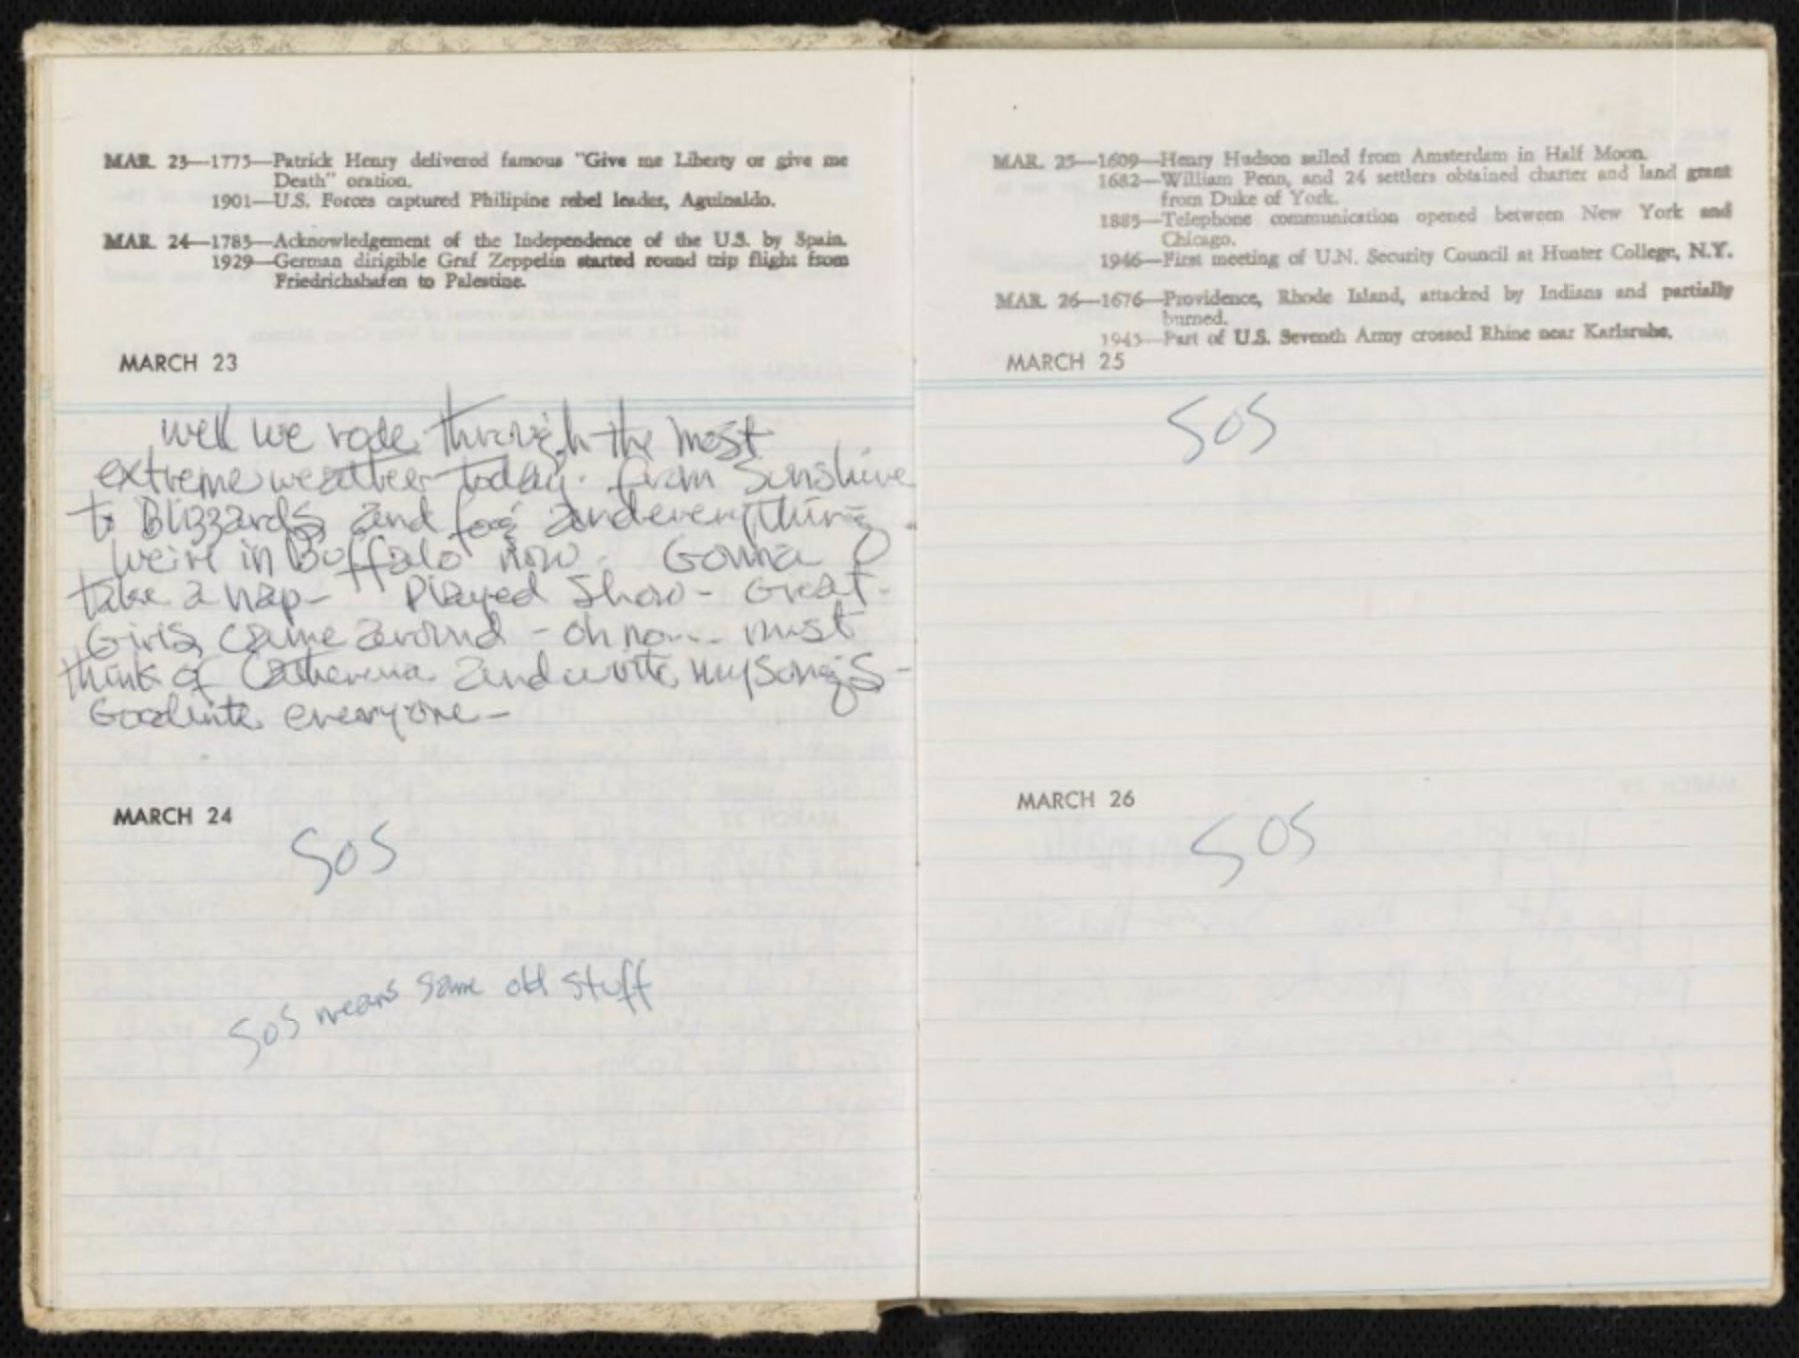 MAR. 23—1775—Patrick Henry delivered famous "Give me Liberty or give me
Death" oration.
1901—U.S. Forces captured Philipine rebel leader, Aguinaldo.
MAR. 24—1785—Acknowledgement of the Independence of the U.S. by Spain.
1929—German dirigible Graf Zeppelin started round trip flight from
Friedrichshafen to Palestine.
MARCH 23
well we rode through the most
extreme weather today. from Sunshine
to Blizzards and fog and everything.
We're in Buffalo now. Gonna
take a nap- Played Show- Great-
Girls came around - oh no... must
think of Catherina and write my songs -
Goodnite everyone -
MARCH 24
SOS
SOS means same old stuff
MAR. 25—1609—Henry Hudson sailed from Amsterdam in Half Moon.
1682—William Penn, and 24 settlers obtained charter and land grant
from Duke of York.
1885—Telephone communication opened between New York and
Chicago.
1946—First meeting of U.N. Security Council at Hunter College, N.Y.
MAR. 26—1676—Providence, Rhode Island, attacked by Indians and partially
burned.
1945—Part of U.S. Seventh Army crossed Rhine near Karlsruhe.
MARCH 25
SOS
MARCH 26
SOS